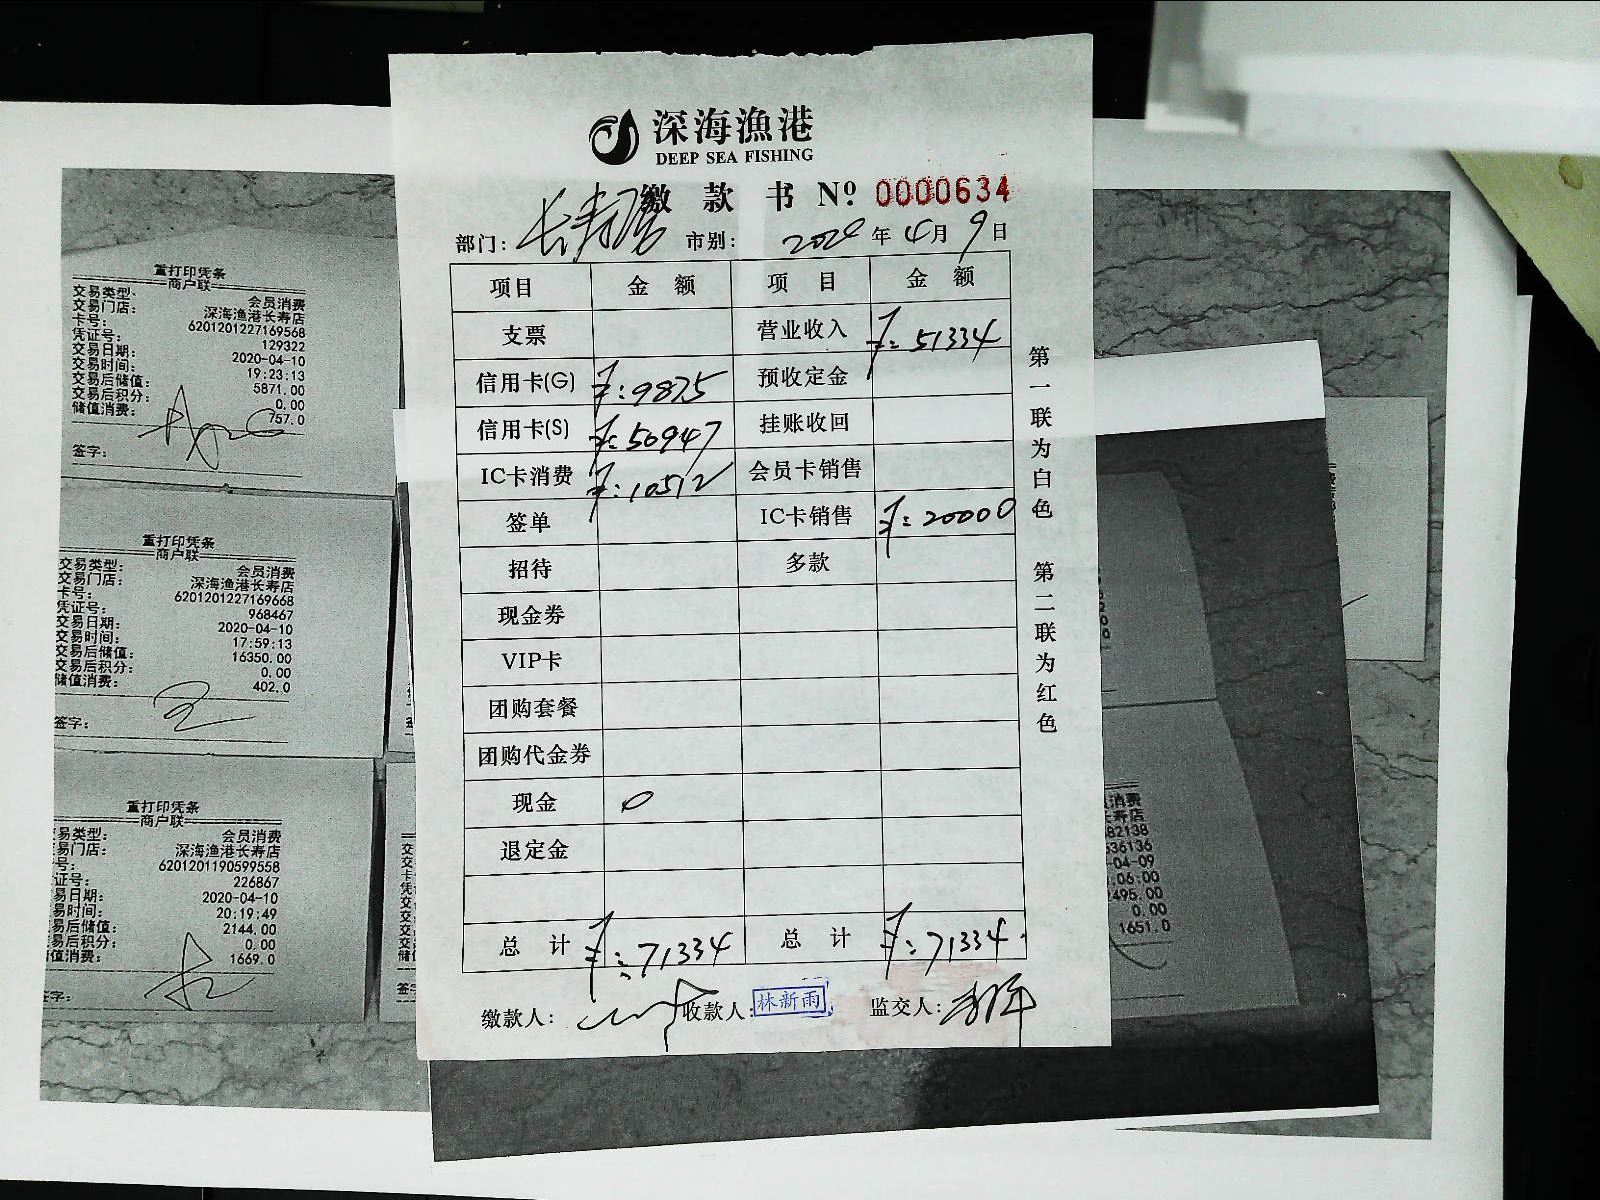 深海漁港
DEEP SEA FISHING
缴款书 № 0000634
部门： 市别： 2020年4月9日
项目 金额 项目 金额
支票 营业收入 ¥：51334
信用卡(G) ¥：9875 预收定金
信用卡(S) ¥：50947 挂账收回
IC卡消费 ¥：10512 会员卡销售
签单 IC卡销售 ¥：20000
招待 多款
现金券
VIP卡
团购套餐
团购代金券
现金 0
退定金
总计 ¥：71334 总计 ¥：71334
缴款人： 收款人： 林新雨 监交人：
第一联为白色 第二联为红色
重打印凭条
商户联
交易类型： 会员消费
交易门店： 深海渔港长寿店
卡号： 6201201227169568
凭证号： 129322
交易日期： 2020-04-10
交易时间： 19:23:13
交易后储值： 5871.00
交易后积分： 0.00
储值消费： 757.0
签字：
重打印凭条
商户联
交易类型： 会员消费
交易门店： 深海渔港长寿店
卡号： 6201201227169668
凭证号： 968467
交易日期： 2020-04-10
交易时间： 17:59:13
交易后储值： 16350.00
交易后积分： 0.00
储值消费： 402.0
签字：
重打印凭条
商户联
易类型： 会员消费
易门店： 深海渔港长寿店
号： 6201201190599558
证号： 226867
易日期： 2020-04-10
易时间： 20:19:49
易后储值： 2144.00
易后积分： 0.00
值消费： 1669.0
字：
消费
店
82138
636136
-04-09
:06:00
495.00
0.00
1651.0